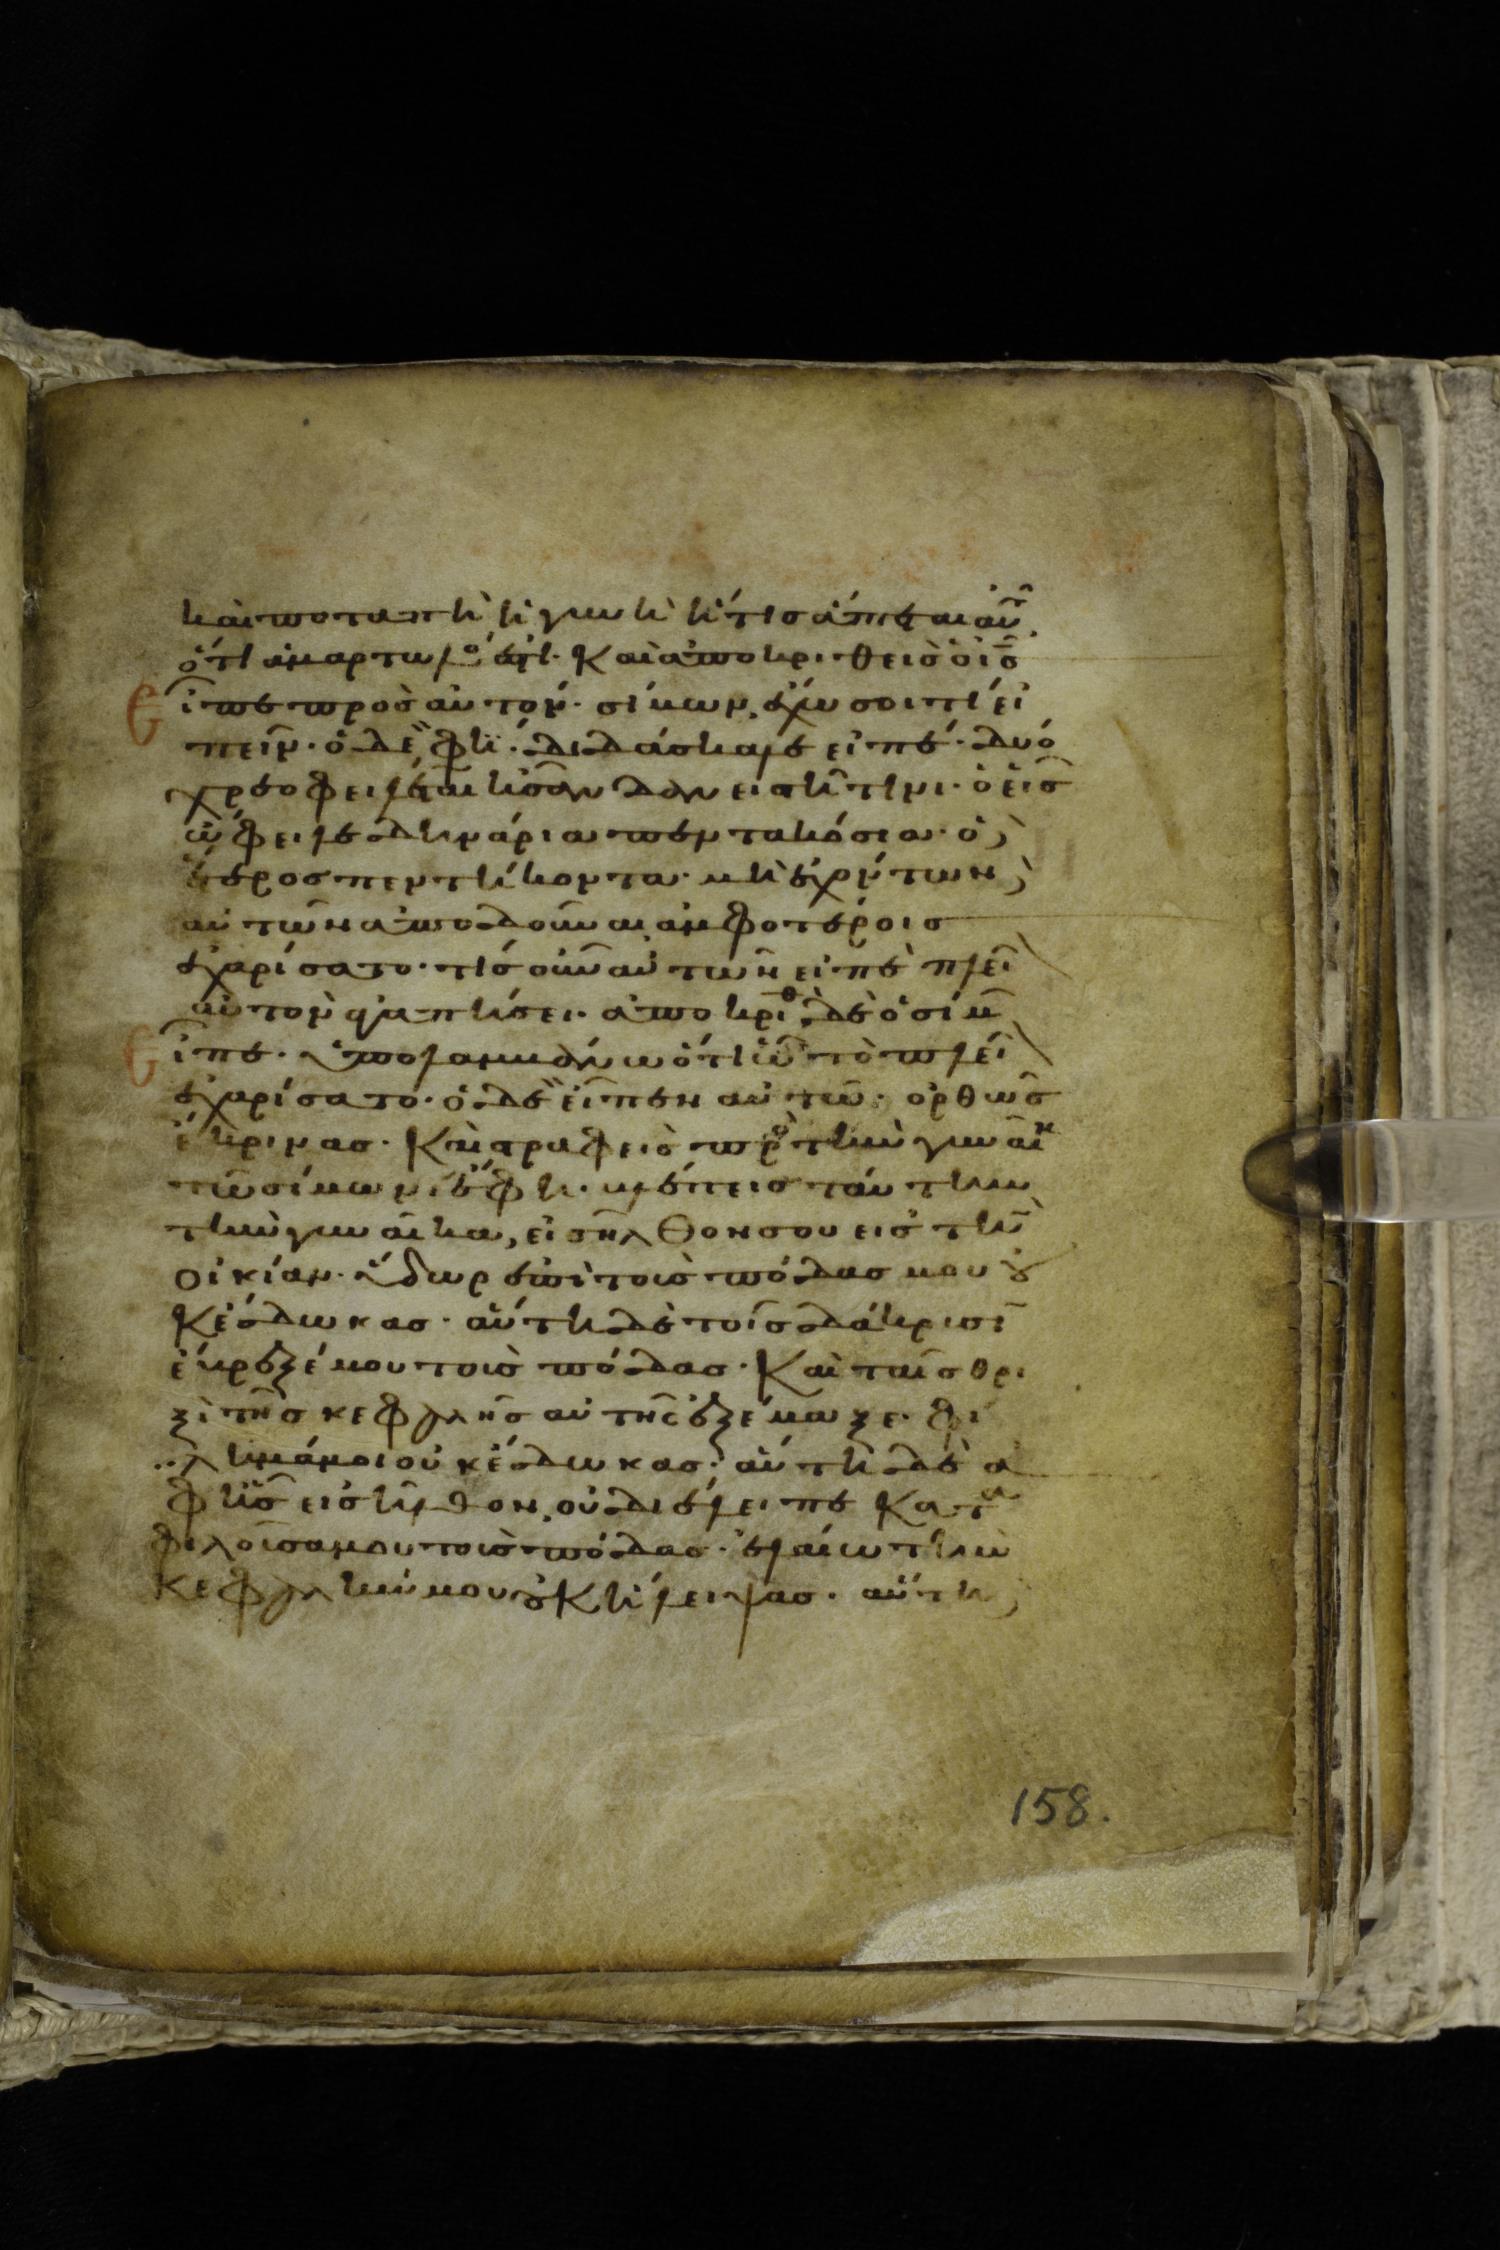 καὶ ποταπὴ ἡ γυνὴ ἥτις ἅπτεται αὐτ
ὅτι ἁμαρτωλό ἐστι. Καὶ ἀποκριθεὶς ὁ ις
Εἶπε πρὸς αὐτόν. σίμων, ἔχω σοι τι εἰ
πεῖν. ὁ δὲ φὴ. διδάσκαλε εἰπέ. δύο
χρεοφειλέται ἦσαν δανειστῆ τινι. ὁ εἷς
ὤφειλε δηνάρια πεντακόσια. ὁ
ἕτερος πεντήκοντα. μὴ ἐχόντων
αὐτῶν ἀποδοῦναι, ἀμφοτέροις
ἐχαρίσατο. τίς οὖν αὐτῶν εἰπὲ πλεῖ
αὐτὸν ἀγαπήσει. ἀποκριθ δὲ ὁ σίμ
Εἶπε. ὑπολαμβάνω ὅτι ὧ τὸ πλεῖ
ἐχαρίσατο. ὁ δὲ εἶπεν αὐτῶ. ὀρθῶς
ἔκρινας. Καὶ στραφεὶς πρὸ τὴν γυναῖκ
τῶ σίμωνι ἔφη. βλέπεις ταύτην
τὴν γυναῖκα, εἰσῆλθον σου εἰς τὴν
οἰκίαν. ὕδωρ ἐπὶ τοὺς πόδας μου οὐ
Κ ἔδωκας. αὕτη δὲ τοῖς δάκρυσι
ἔβρεξέ μου τοὺς πόδας. Καὶ ταῖς θρι
ξὶ τῆς κεφαλῆς αὐτῆς ἐξέμαξε. φί
λημά μοι οὐκ ἔδωκας. αὕτη δὲ ἀ
φ ἧς εἰσῆλθον, οὐ διέλειπε Κατα
φιλοῦσα μου τοὺς πόδας. ἐλαίω τὴν
Κεφαλήν μου οὐΚ ἤλειψας. αὕτη
158.